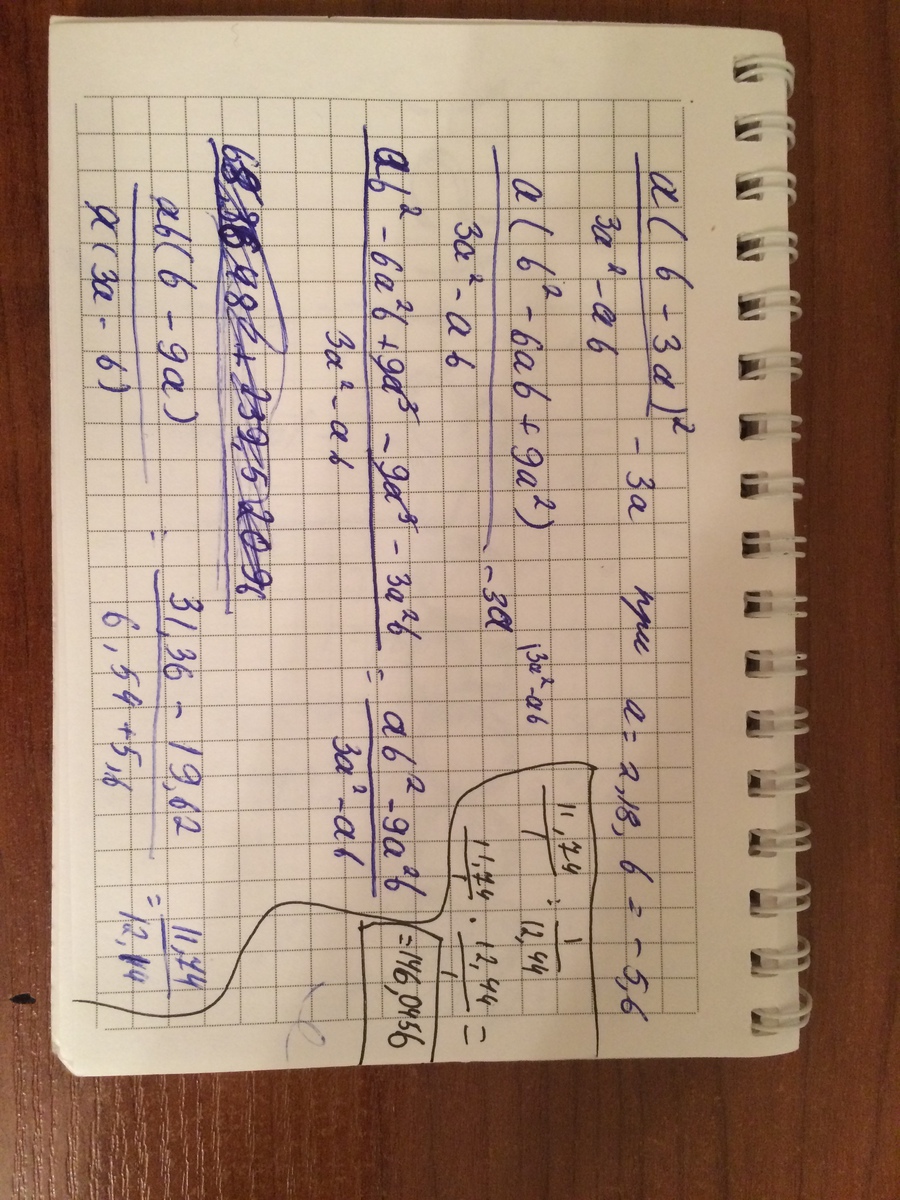 a(b - 3a)² / 3a² - ab - 3a при a = 2,18, b = -5,6
a(b² - 6ab + 9a²) / 3a² - ab - 3a |3a² - ab
ab² - 6a²b + 9a³ - 9a³ - 3a²b / 3a² - ab = ab² - 9a²b / 3a² - ab
ab(b - 9a) / a(3a - b) : 31,36 - 19,62 / 6,54 + 5,6 = 11,74 / 12,14
11,74 / 1 : 1 / 12,44
11,74 / 1 · 12,44 / 1 =
= 146,0456